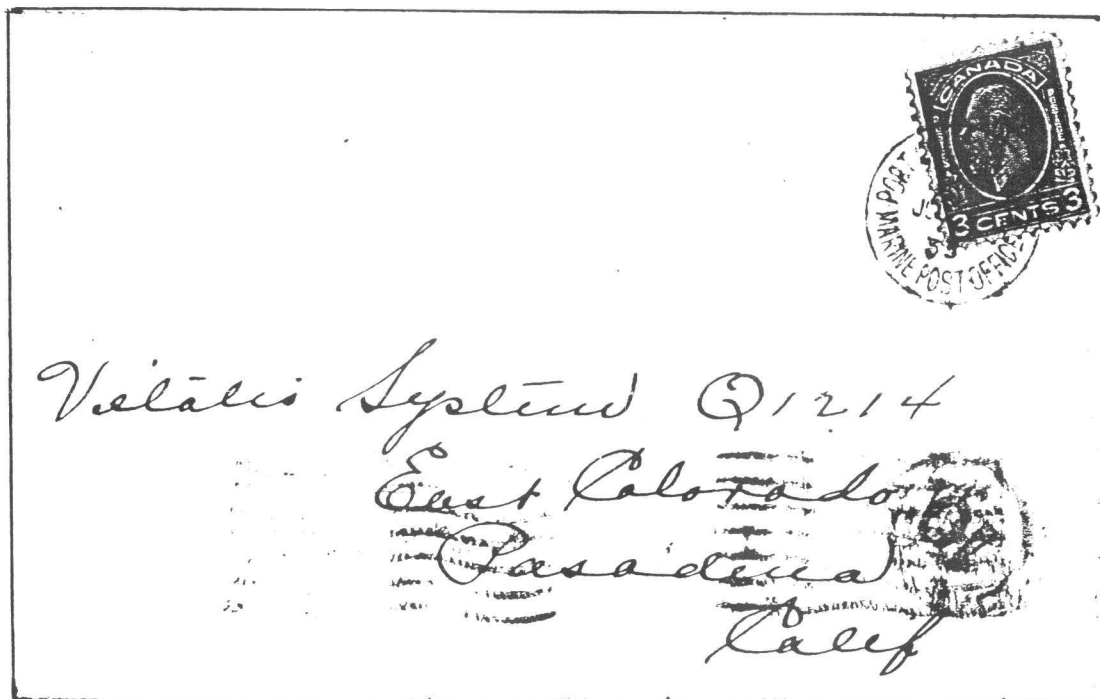 CANADA
3 CENTS 3
PORT
MARINE POST OFFICE
Vitalis System Q1214
East Colorado
Pasadena
Calif